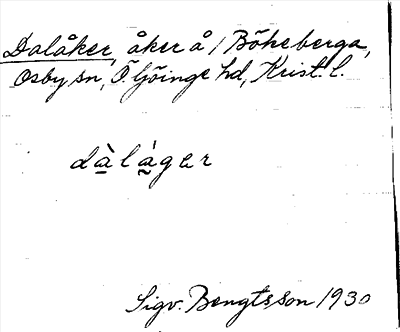 Dalåker, åker å / Bökeberga,
Osby sn, Ö Göinge hd, Krist. l.
dàláger
Sigv. Bengtsson 1930